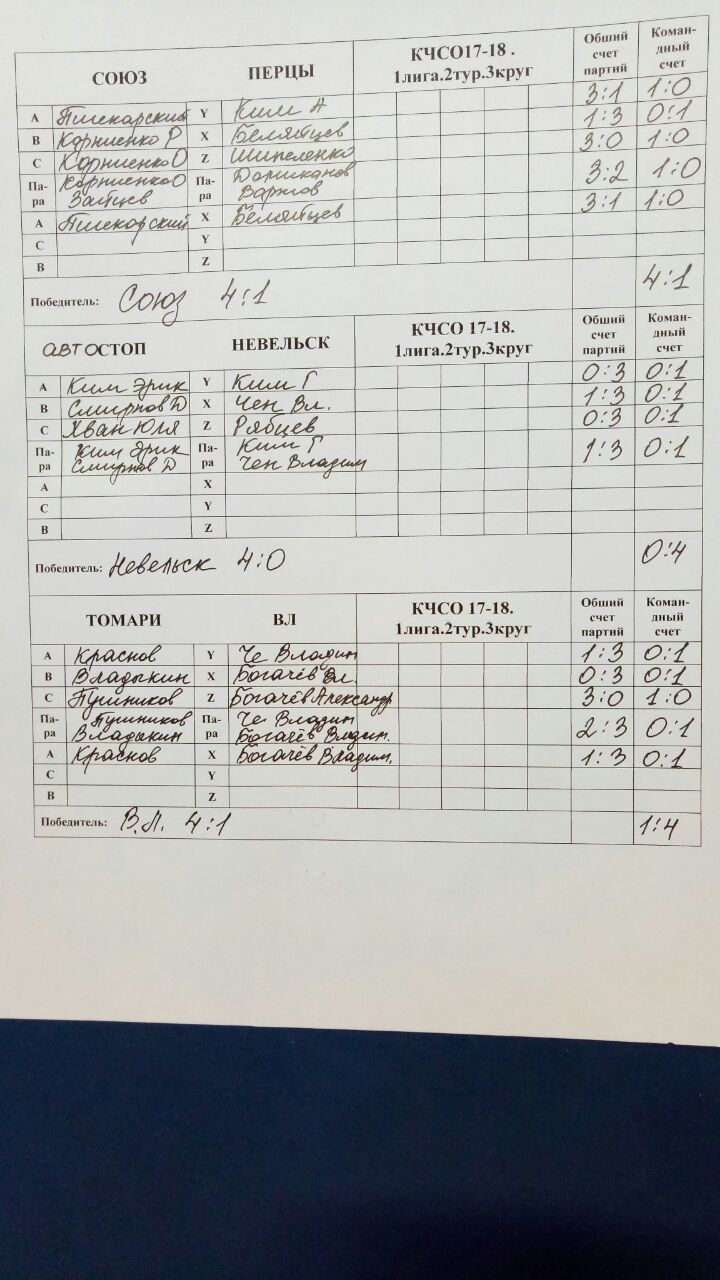 СОЮЗ ПЕРЦЫ КЧСО17-18 . 1лига.2тур.3круг Общий счет партий Коман-дный счет
A Пшекарский Y Ким А 3:1 1:0
B Корниенко Р X Беляйцев 1:3 0:1
C Корниенко О Z Шипеленко 3:0 1:0
Па-ра Корниенко О Зайцев Па-ра 3:2 1:0
A Пшекарский X Беляйцев 3:1 1:0
C Y
B Z
Победитель: Союз 4:1 4:1
АВТОСТОП НЕВЕЛЬСК КЧСО 17-18. 1лига.2тур.3круг Общий счет партий Коман-дный счет
A Ким Эрик Y Ким Г 0:3 0:1
B Смирнов Д X Чен Вл. 1:3 0:1
C Хван Юля Z Рябцев 0:3 0:1
Па-ра Ким Эрик Смирнов Д Па-ра Ким Г Чен Владим 1:3 0:1
A X
C Y
B Z
Победитель: Невельск 4:0 0:4
ТОМАРИ ВЛ КЧСО 17-18. 1лига.2тур.3круг Общий счет партий Коман-дный счет
A Краснов Y Че Владим 1:3 0:1
B Владыкин X Богачёв Вл. 0:3 0:1
C Пушников Z Богачёв Александр 3:0 1:0
Па-ра Пушников Владыкин Па-ра Че Владим Богачёв Владим. 2:3 0:1
A Краснов X Богачёв Владим. 1:3 0:1
C Y
B Z
Победитель: В.Л. 4:1 1:4